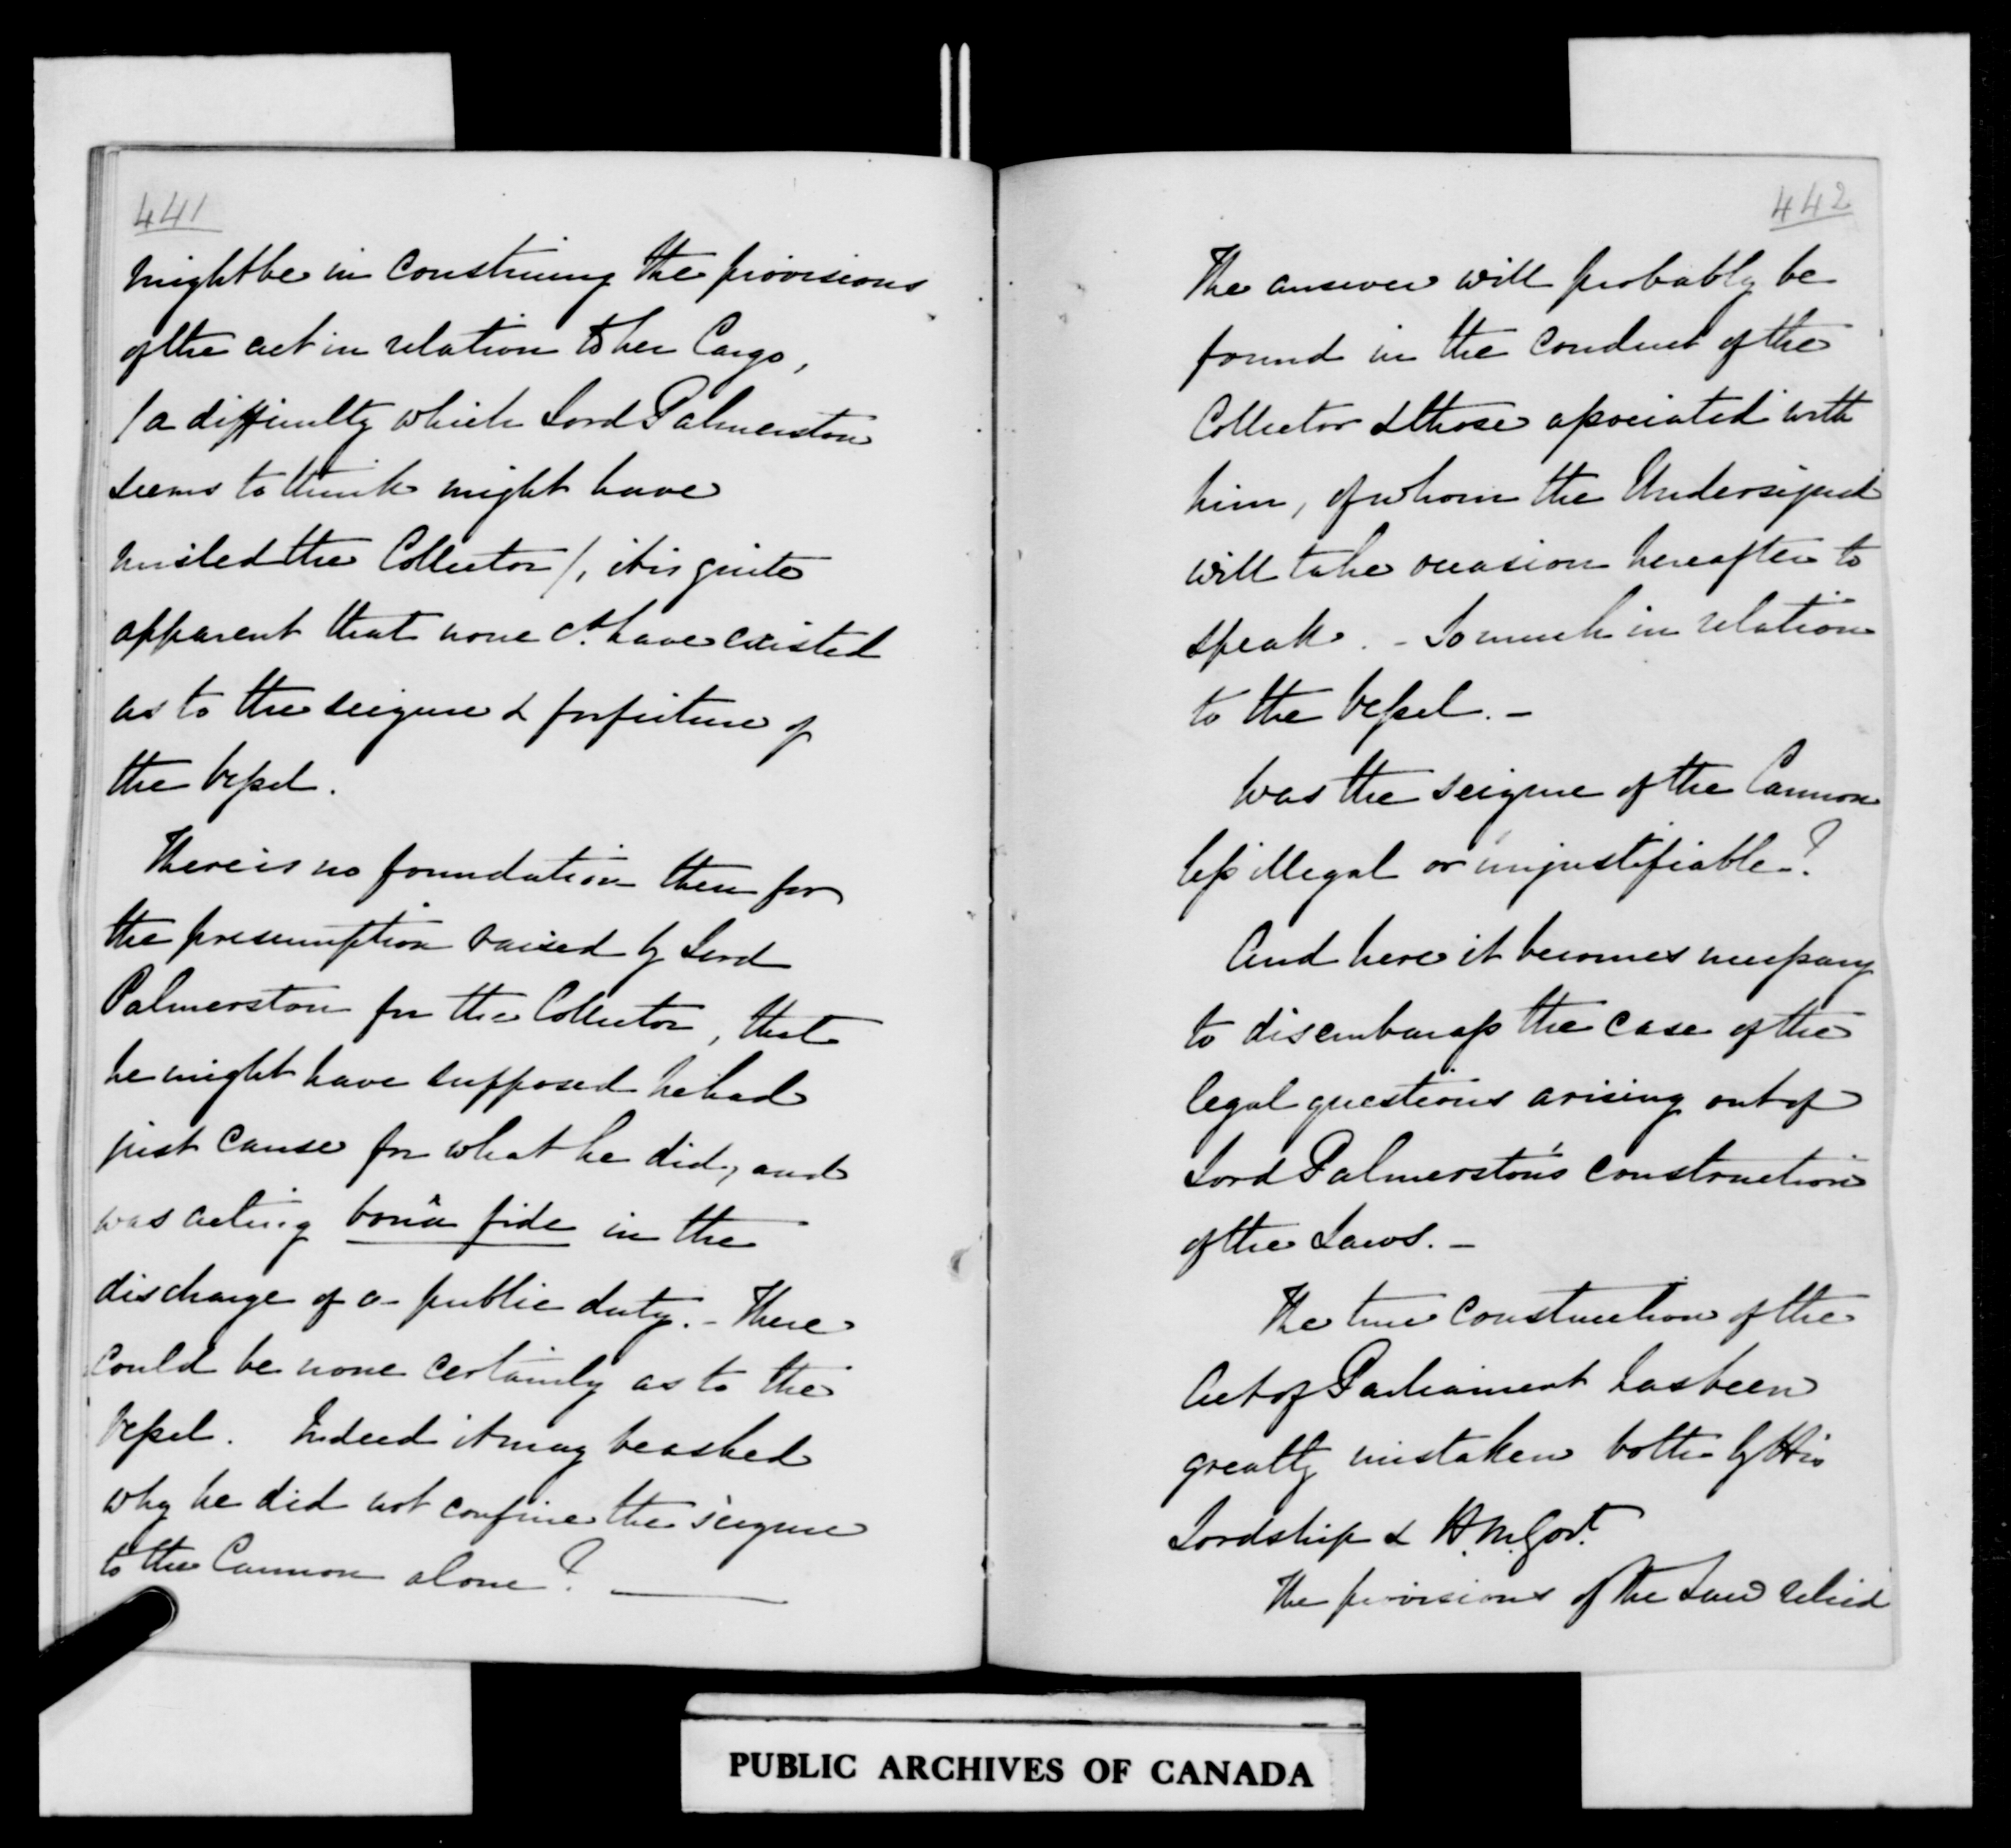 441
might be in construing the provisions
of the act in relation to her Cargo,
/ a difficulty which Lord Palmerston
seems to think might have
misled the Collector /, it is quite
apparent that none cd. have existed
as to the seizure & forfeiture of
the vessel.
There is no foundation then for
the presumption raised by Lord
Palmerston for the Collector, that
he might have supposed he had
just cause for what he did, and
was acting bonâ fide in the
discharge of a public duty. - There
could be none certainly as to the
vessel. Indeed it may be asked
why he did not confine the seizure
to the Cannon alone?
442
The answer will probably be
found in the conduct of the
Collector & those associated with
him, of whom the Undersigned
will take occasion hereafter to
speak. - So much in relation
to the vessel. -
Was the seizure of the Cannon
less illegal or unjustifiable?
And here it becomes necessary
to disembarass the case of the
legal questions arising out of
Lord Palmerston's construction
of the Laws. -
The true construction of the
Act of Parliament has been
greatly mistaken both by His
Lordship & H.M. Govt.
The provisions of the Law relied
PUBLIC ARCHIVES OF CANADA